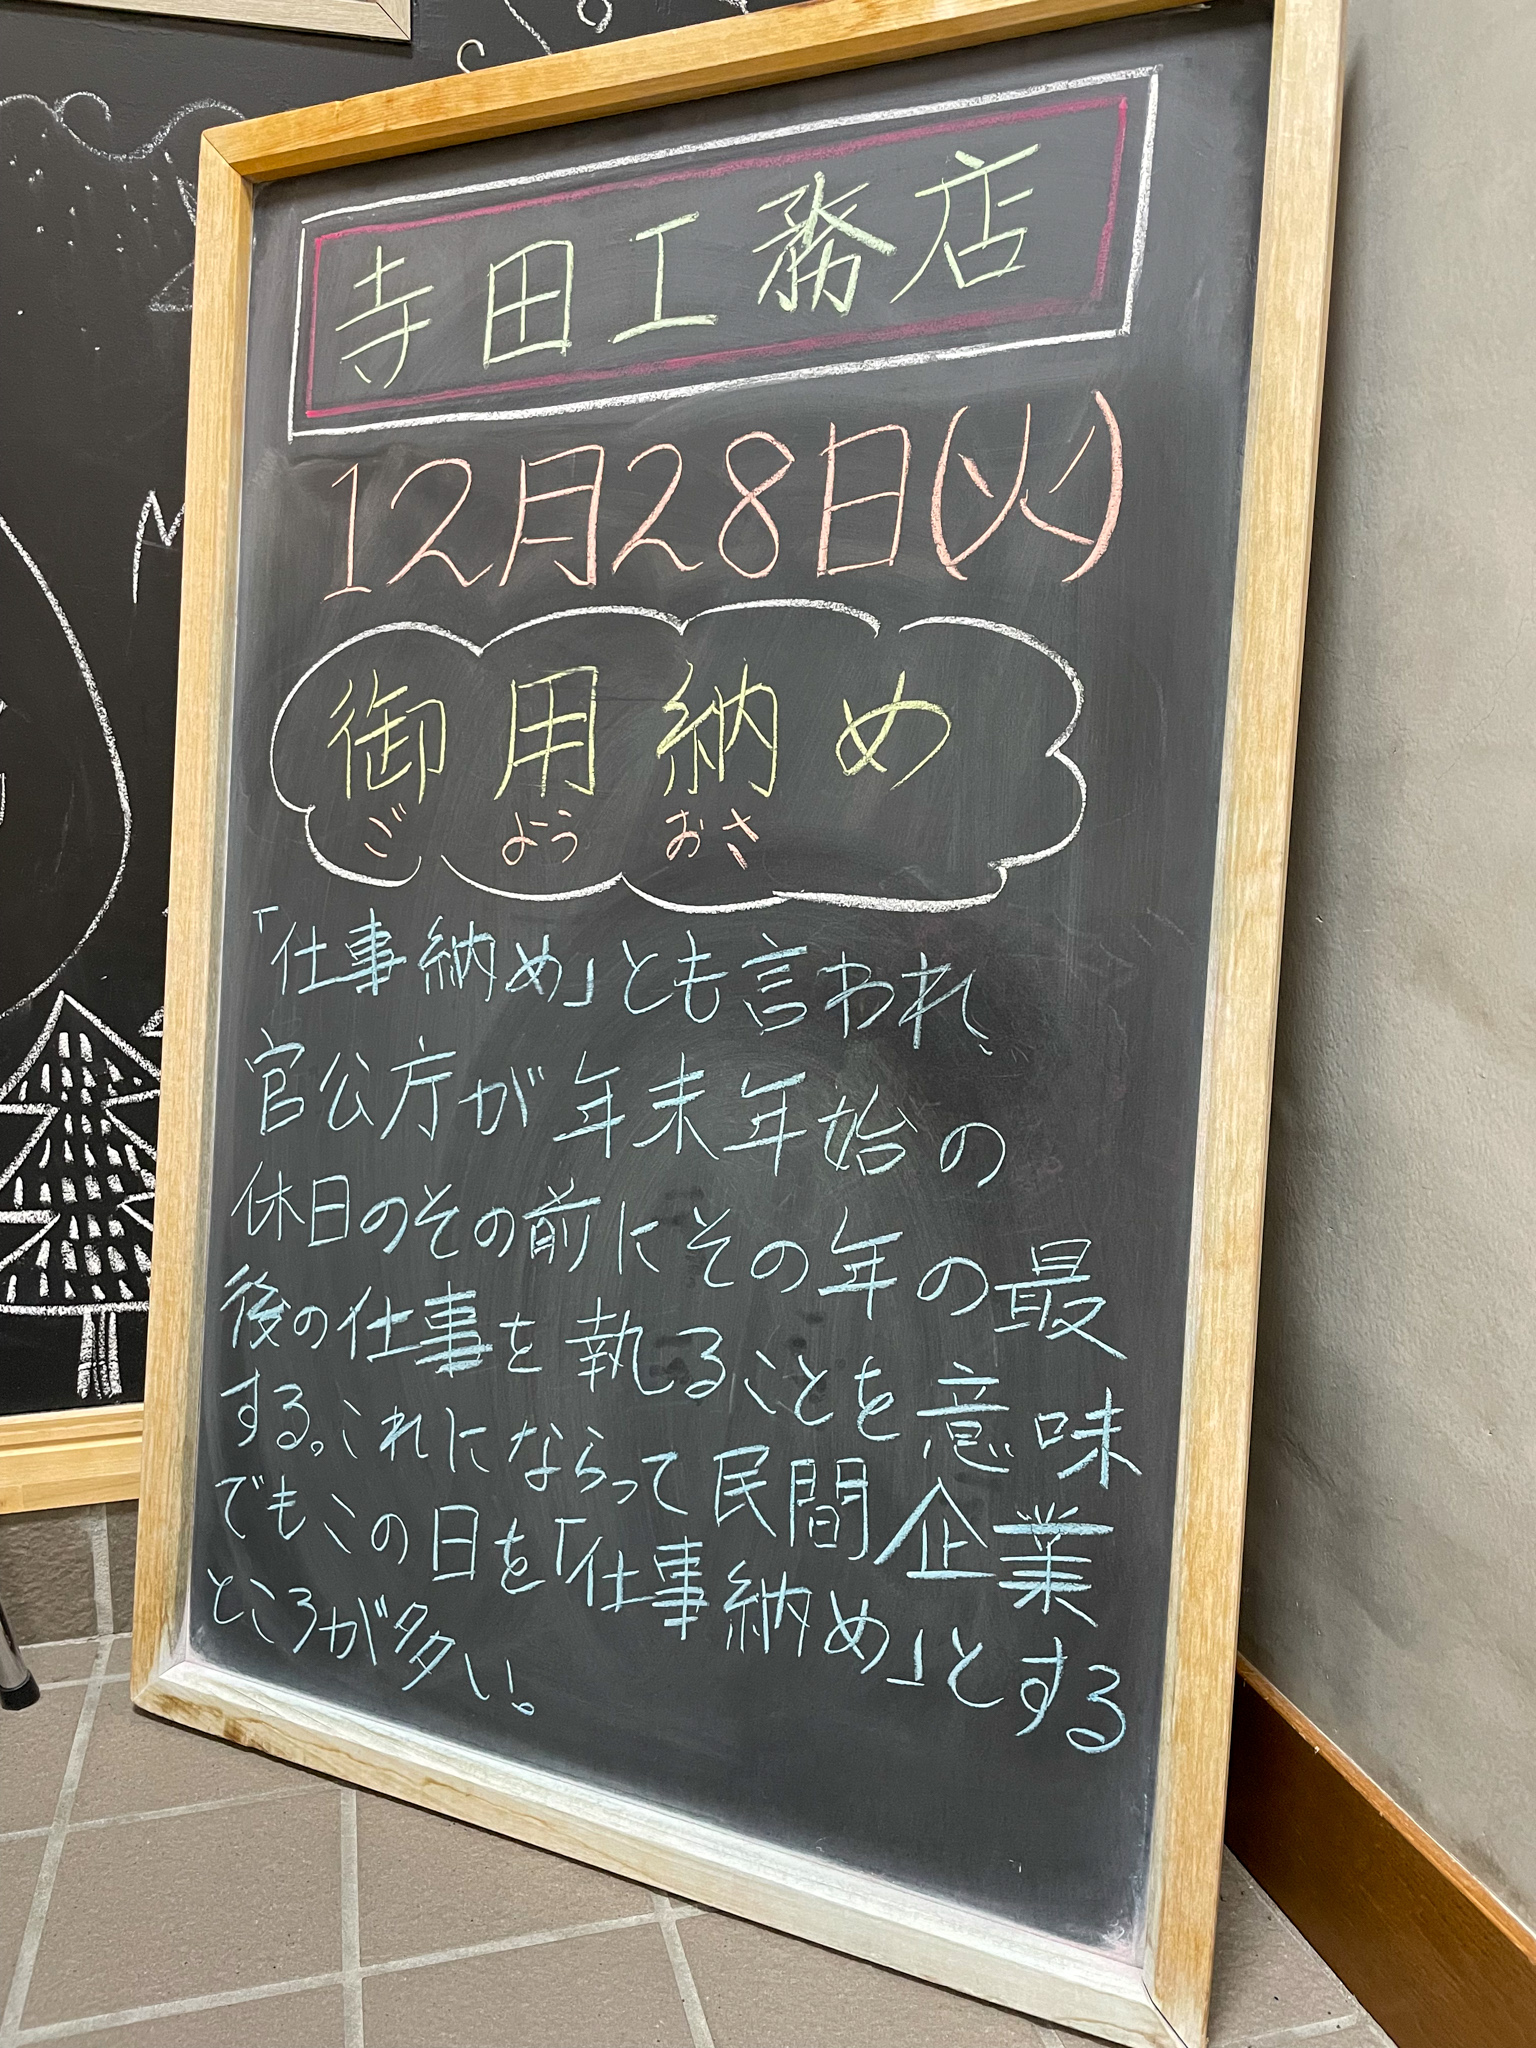 寺田工務店
12月28日(火)
御用納め
ごようおさ
「仕事納め」とも言われ、
官公庁が年末年始の
休日のその前にその年の最
後の仕事を執ることを意味
する。これにならって民間企業
でもこの日を「仕事納め」とする
ところが多い。